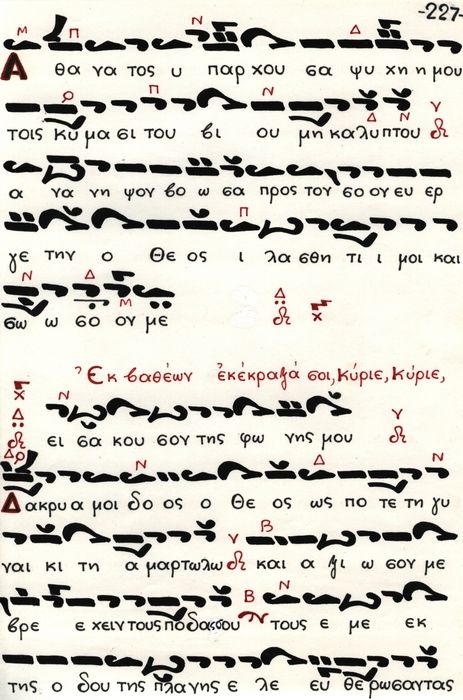 -227-
Α θα να τος υ παρ χου σα ψυ χη η μου
τοις κυ μα σι του βι ου μη κα λυ πτου
α να νη ψον βο ω σα προς τον σο ον ευ ερ
γε την ο Θε ος ι λα σθη τι ι μοι και
σω ω σο ον με
Ἐκ βαθέων ἐκέκραξά σοι, Κύριε, Κύριε,
ει σα κου σον της φω νης μου
Δακρυ α μοι δο ος ο Θε ος ως πο τε τη γυ
ναι κι τη α μαρτωλω και α ξι ω σον με
βρε ε χειν τους ποδας σου τους ε με εκ
της ο δου της πλανης ε λε ευ θε ρωσαντας